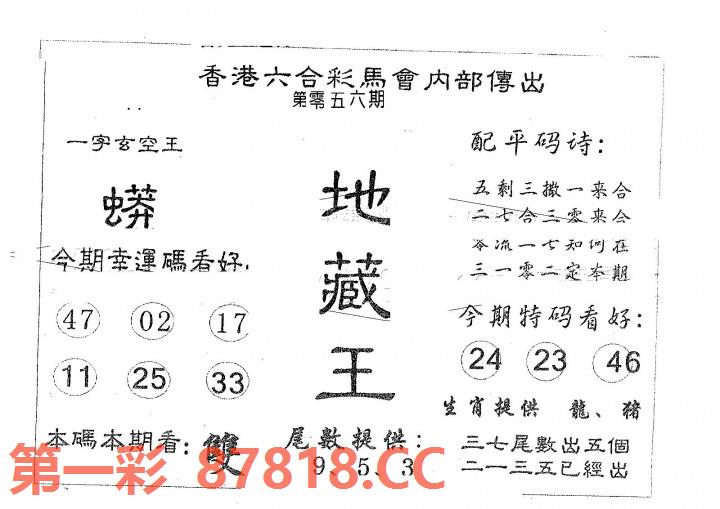 香港六合彩馬會内部傳出
第零五六期
一字玄空王
蟒
今期幸運碼看好:
47 02 17
11 25 33
本碼本期看: 雙
地藏王
尾數提供:
9.5.3
配平码诗:
五剩三撒一来合
二七合三零来合
零流一七知何在
三一零二定本期
今期特码看好:
24 23 46
生肖提供 龍、猪
三七尾數出五個
二一三五已經出
第一彩 87818.CC